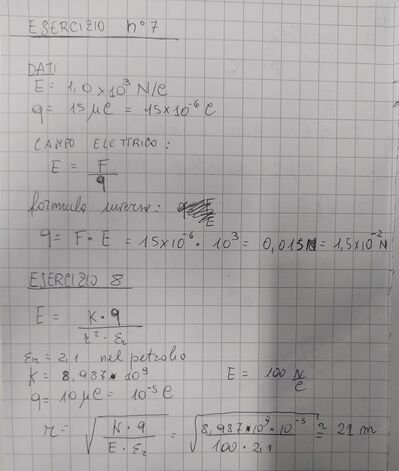 ESERCIZIO n°7
DATI
E = 1,0 x 10³ N/C
q = 15 μC = 15 x 10⁻⁶ C
CAMPO ELETTRICO:
E = F / q
formula inversa:
q = F · E = 15 x 10⁻⁶ · 10³ = 0,015 N = 1,5 x 10⁻² N
ESERCIZIO 8
E = K · q / r² · εr
εr = 2,1 nel petrolio
K = 8,987 · 10⁹ E = 100 N/C
q = 10 μC = 10⁻⁵ C
r = √(K · q / E · εr) = √(8,987 · 10⁹ · 10⁻⁵ / 100 · 2,1) ≅ 21 m